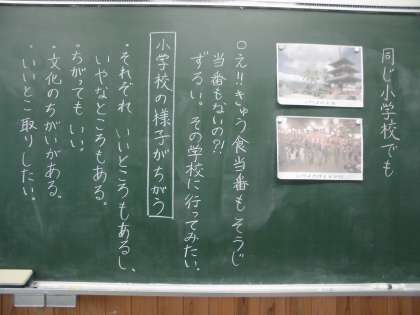 同じ小学校でも
○え!!きゅう食当番もそうじ
当番もないの?!
ずるい。その学校に行ってみたい。
小学校の様子がちがう
・それぞれ いいところもあるし、
いやなところもある。
・ちがっても いい。
・文化のちがいがある。
・いいとこ取りしたい。